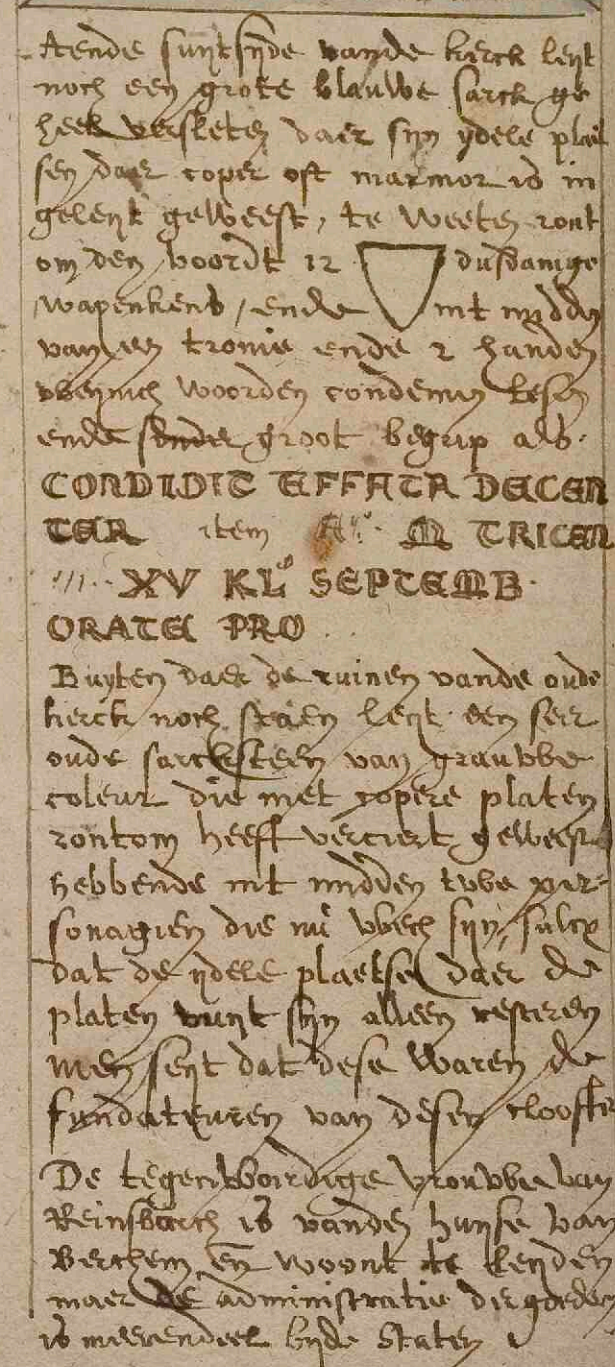 Aende suytsyde vande kerck leyt
noch een grote blauwe sarck ge
heel versleten daer syn ydele plat
sen daer coper oft marmor is in
geleyt geweest, te weeten ront
om den boordt 12 dusdanige
wapenkens, ende int midden
van een tronie ende 2 handen
weynich woorden condemen lesen
ende sonder groot begrip als.
CONDIDIT EFFATA DECEN
TER item A.º M TRICEN
XV KL SEPTEMB
ORATE PRO . .
Buyten daer de ruinen vande oude
kerck noch staen leyt een seer
oude sarcksteen van grauwe
coleur die met copere platen
rontom heeft verciert geweest
hebbende int midden twe per-
sonagien die nu wech syn, sulcx
dat de ydele plaetsen daer de
platen uuyt syn alleen resteren
men seyt dat dese waren de
fundateuren van desen clooster
De tegenwoordige vrouwe van
Reinsburch is vanden huyse van
Berchem en woont te leyden
maer de administratie der goederen
is meerendeel byde Staten